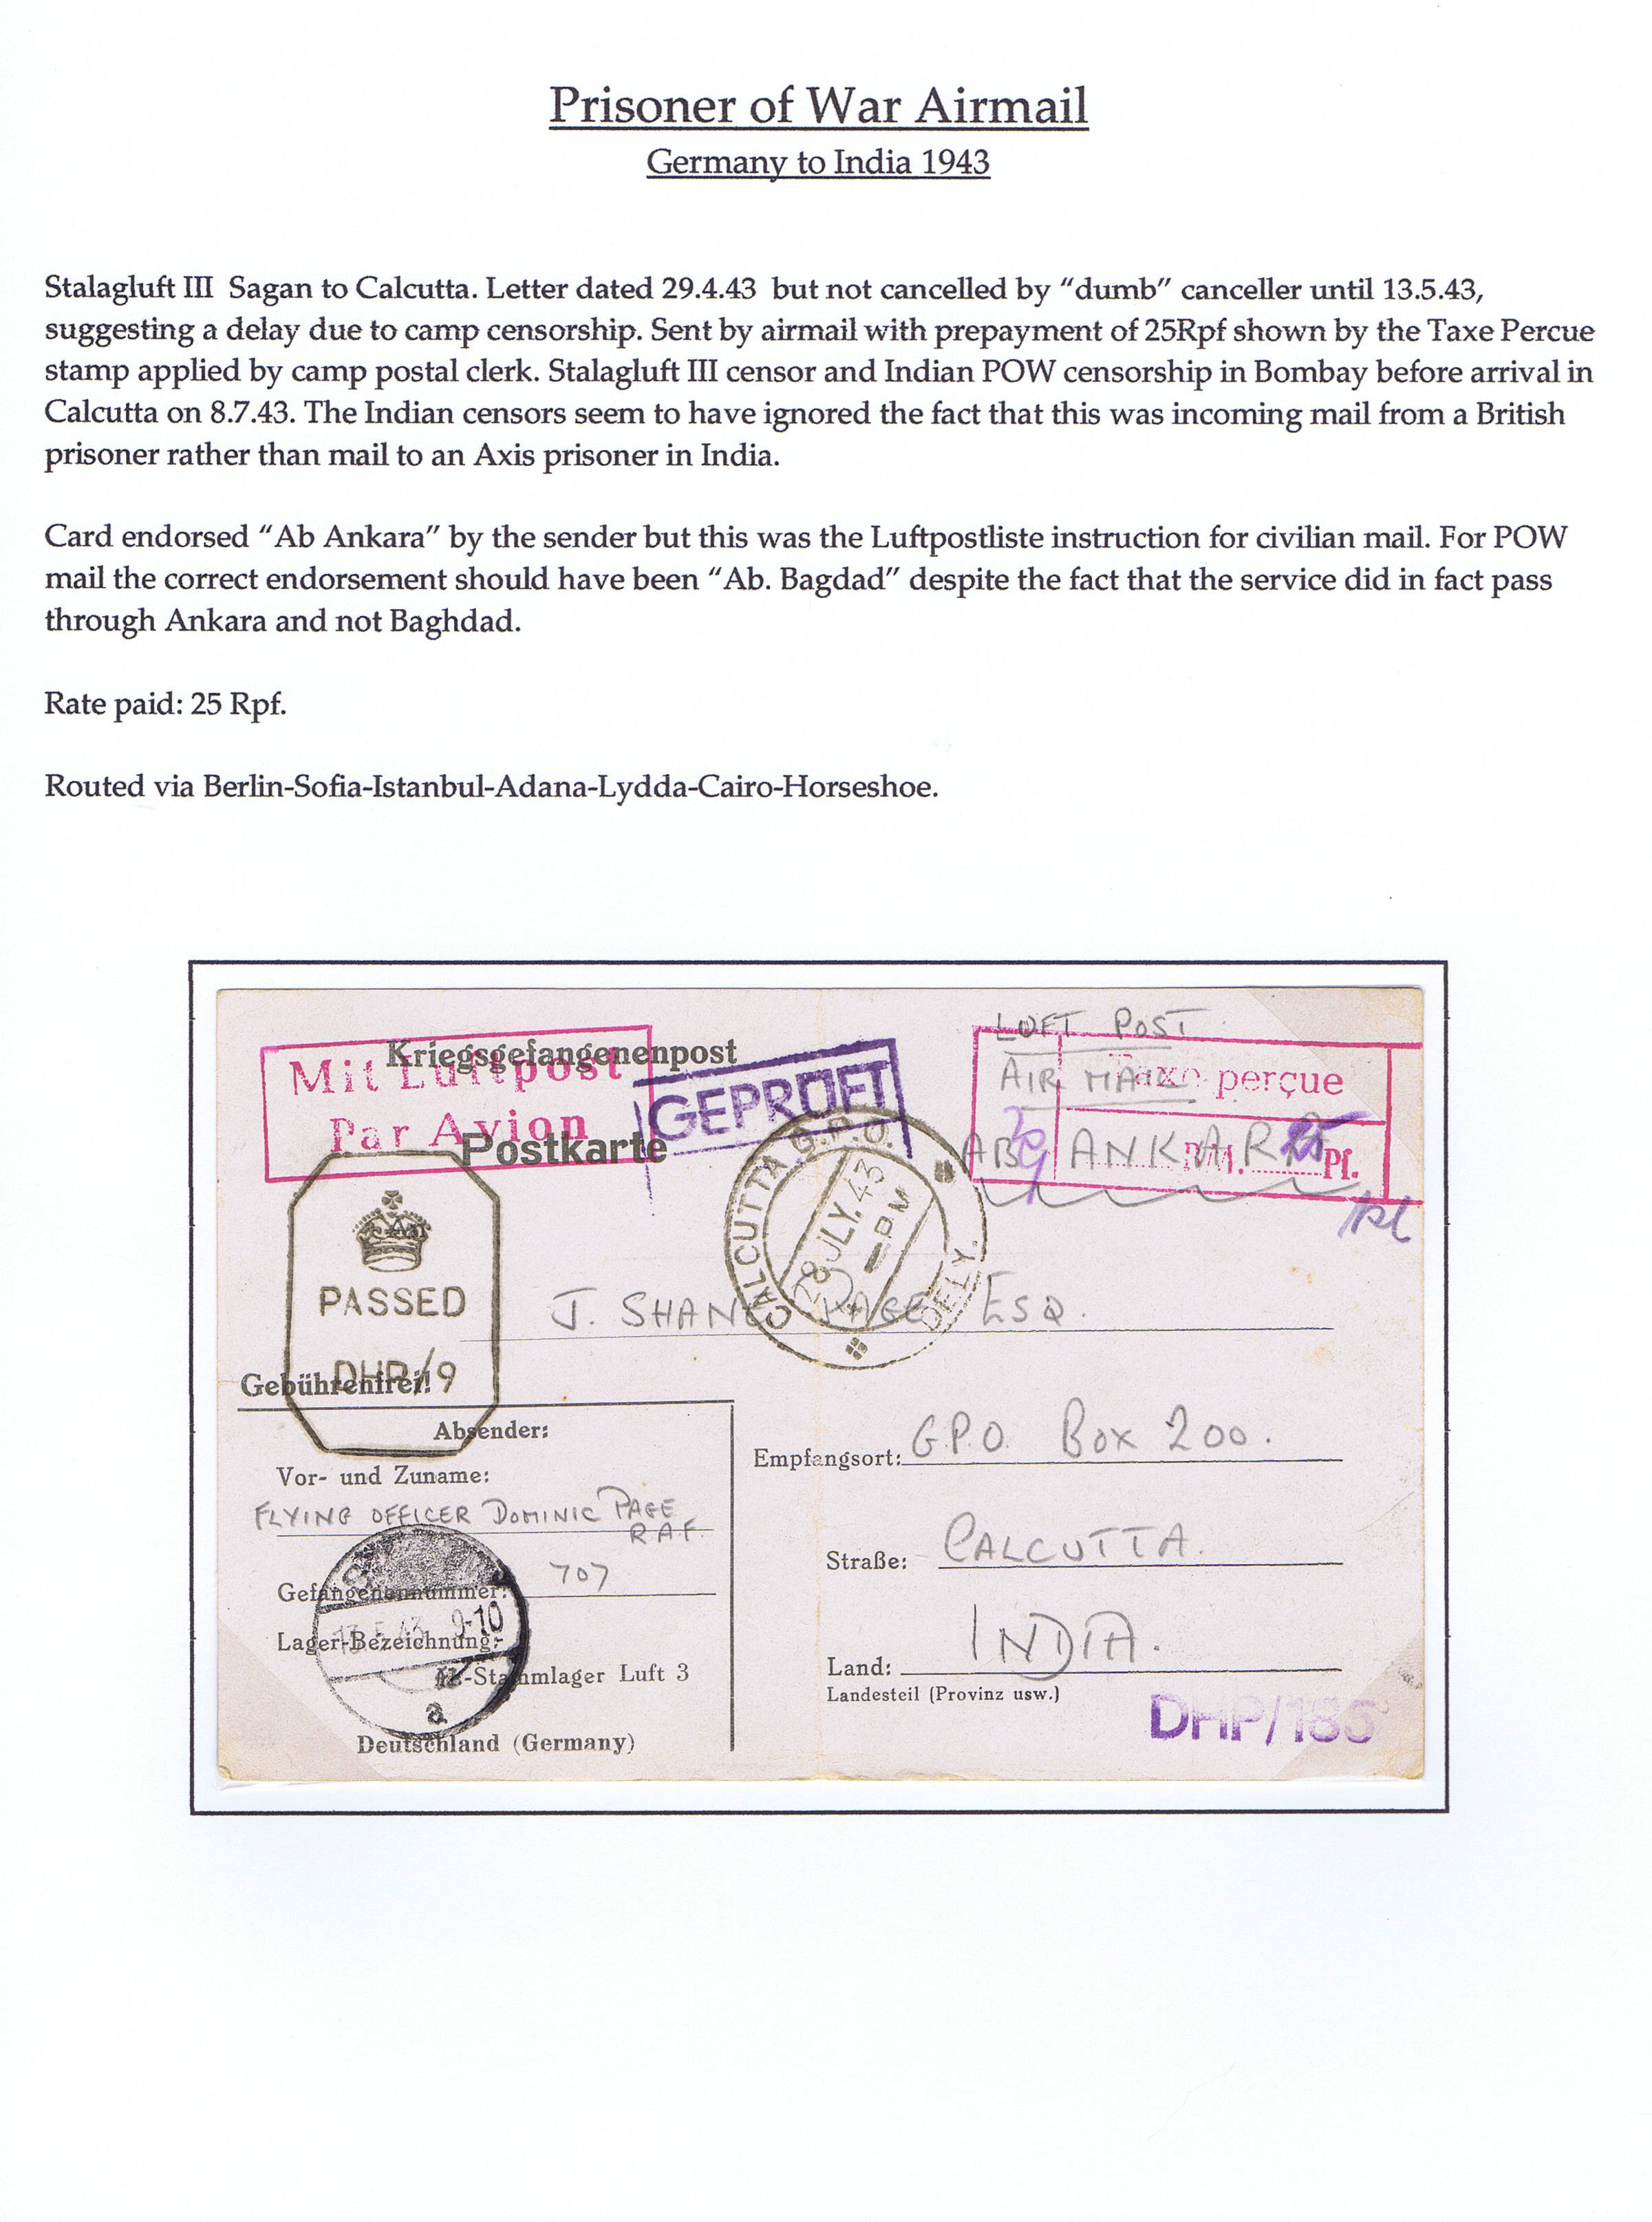 Prisoner of War Airmail
Germany to India 1943
Stalagluft III Sagan to Calcutta. Letter dated 29.4.43 but not cancelled by “dumb” canceller until 13.5.43,
suggesting a delay due to camp censorship. Sent by airmail with prepayment of 25Rpf shown by the Taxe Percue
stamp applied by camp postal clerk. Stalagluft III censor and Indian POW censorship in Bombay before arrival in
Calcutta on 8.7.43. The Indian censors seem to have ignored the fact that this was incoming mail from a British
prisoner rather than mail to an Axis prisoner in India.
Card endorsed “Ab Ankara” by the sender but this was the Luftpostliste instruction for civilian mail. For POW
mail the correct endorsement should have been “Ab. Bagdad” despite the fact that the service did in fact pass
through Ankara and not Baghdad.
Rate paid: 25 Rpf.
Routed via Berlin-Sofia-Istanbul-Adana-Lydda-Cairo-Horseshoe.
LUFT POST
Kriegsgefangenenpost
Mit Luftpost
Par Avion
Postkarte
GEPRÜFT
AIR MAIL
Taxe perçue
AB ANKARA
RM. 25 Pf.
CALCUTTA G.P.O.
28 JLY. 43
PM
DELY.
PASSED
DHP/9
J. SHANE PAGE ESQ.
Gebührenfrei!
Absender:
Vor- und Zuname:
FLYING OFFICER DOMINIC PAGE
R.A.F.
Gefangenennummer: 707
13.5.43 9-10
Lager-Bezeichnung:
-Stammlager Luft 3
a
Deutschland (Germany)
Empfangsort: G.P.O. BOX 200.
Straße: CALCUTTA.
Land: INDIA.
Landesteil (Provinz usw.)
DHP/185